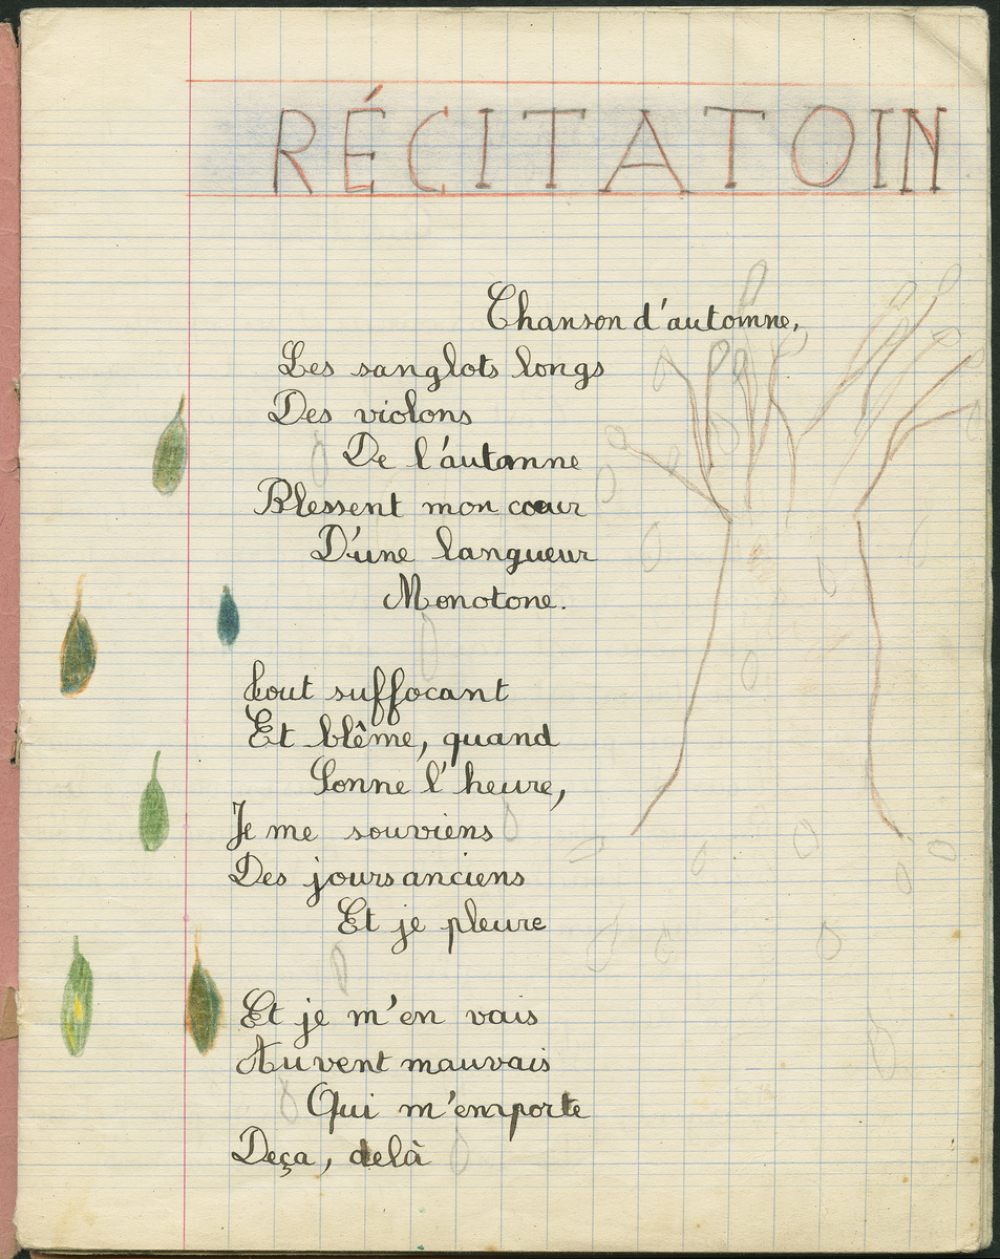 RÉCITATOIN
Chanson d'automne,
Les sanglots longs
Des violons
De l'automne
Blessent mon cœur
D'une langueur
Monotone.
Tout suffocant
Et blême, quand
Sonne l'heure,
Je me souviens
Des jours anciens
Et je pleure
Et je m'en vais
Au vent mauvais
Qui m'emporte
Deça, delà